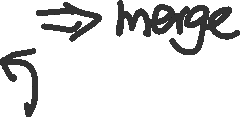 ⇒ merge